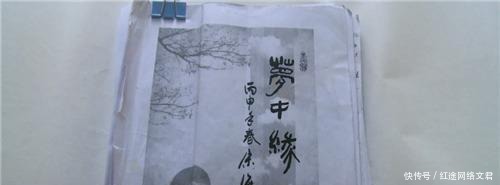 夢中緣
丙申年春
快传号 / 红途网络文君